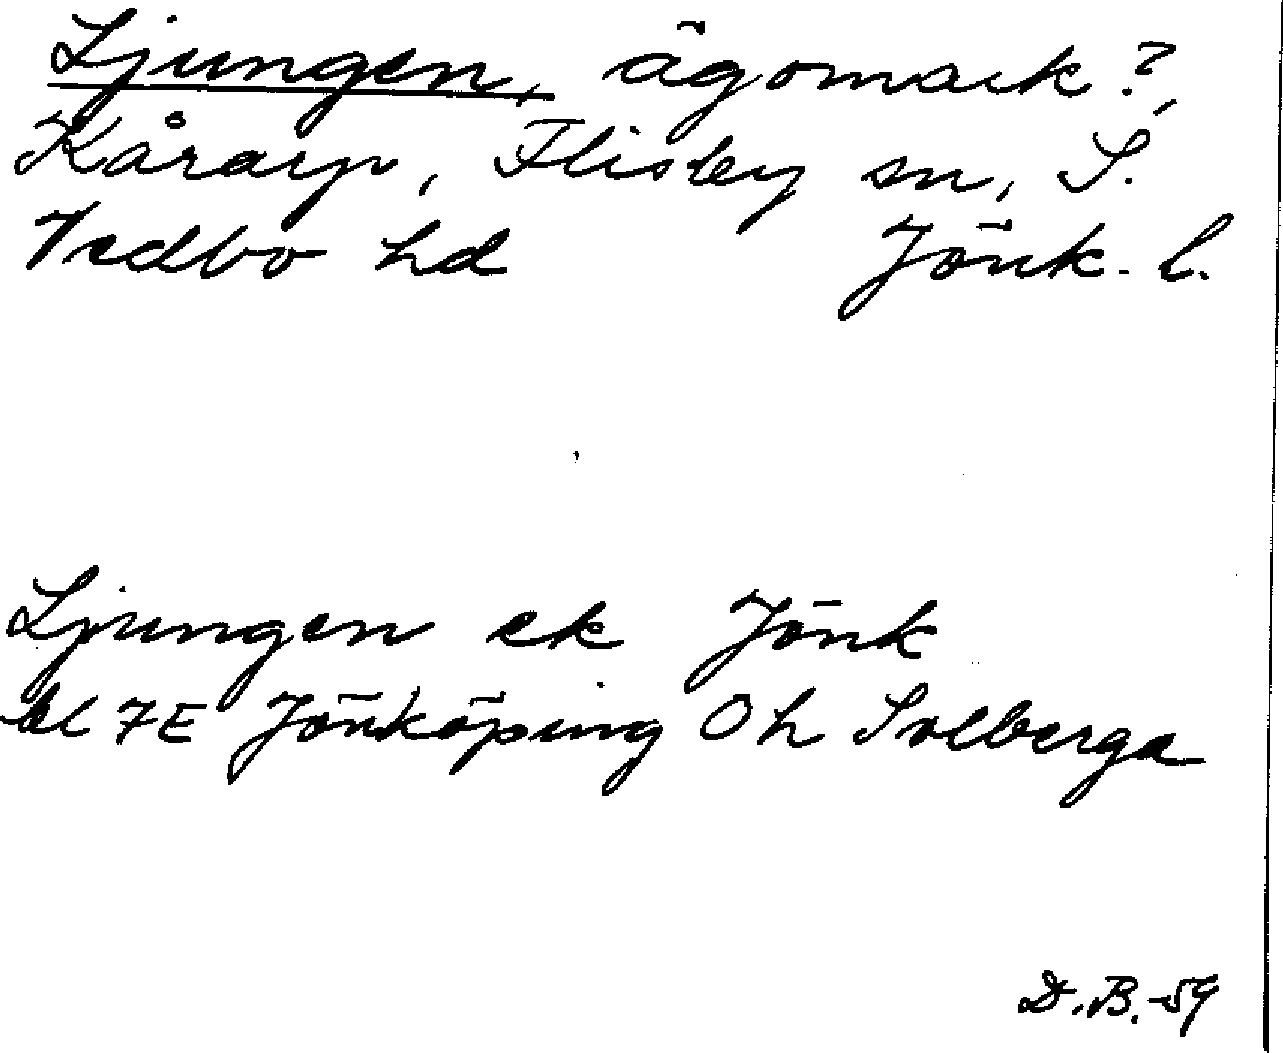 Ljungen, ägomark?,
Kårarp, Flisby sn, S.
Vedbo hd Jönk. l.
Ljungen ek Jönk
bl 7E Jönköping Oh Solberga
D.B.-59